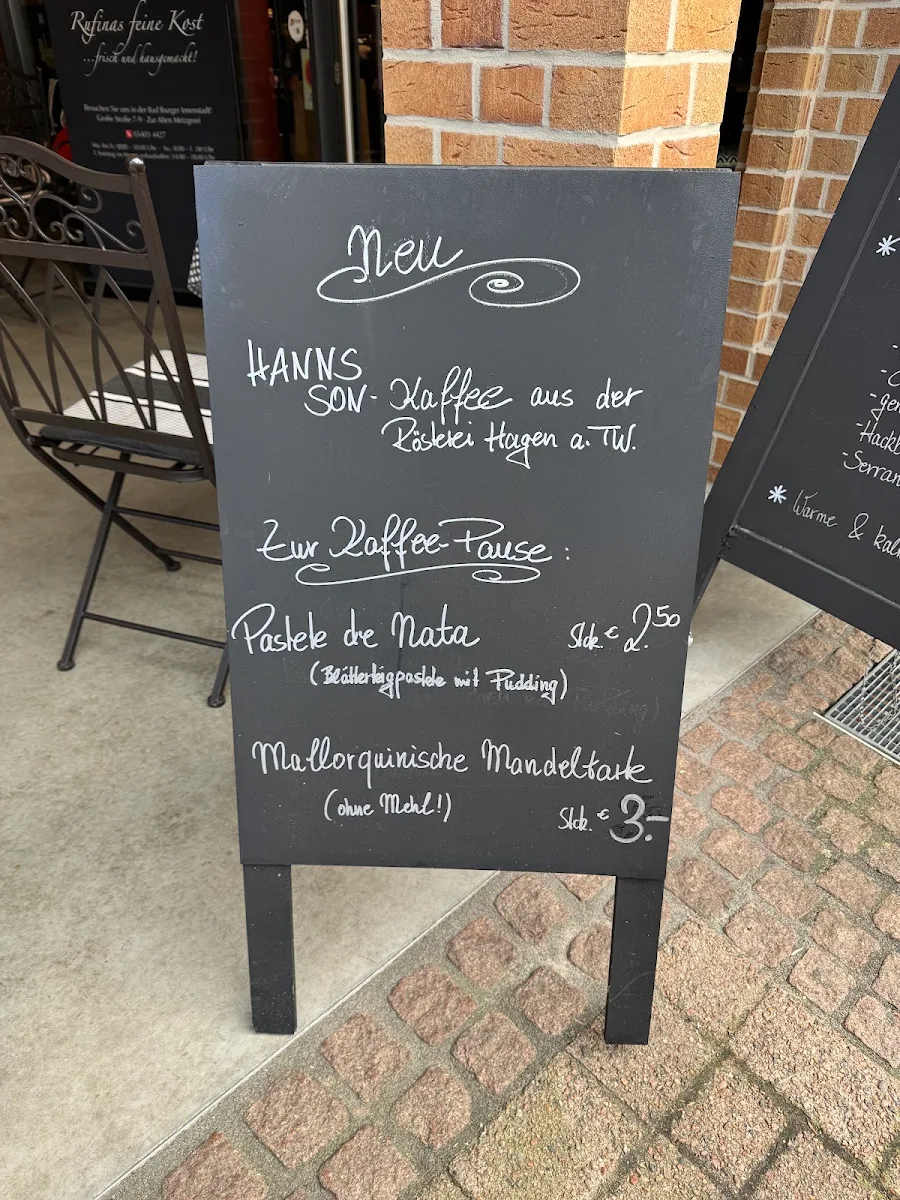 Rufinas feine Kost
...frisch und hausgemacht!
Besuchen Sie uns in der Bad Iburger Innenstadt!
Große Straße 7-9 · Zur Alten Metzgerei
05403 4427
Neu
HANNS
SON - Kaffee aus der
Rösterei Hagen a. TW.
Zur Kaffee-Pause:
Pastete de Nata Stck. € 2.50
(Blätterteigpastete mit Pudding)
Mallorquinische Mandeltarte
(ohne Mehl!) Stck. € 3.-
-Hackb
-Serran
* Warme & kal